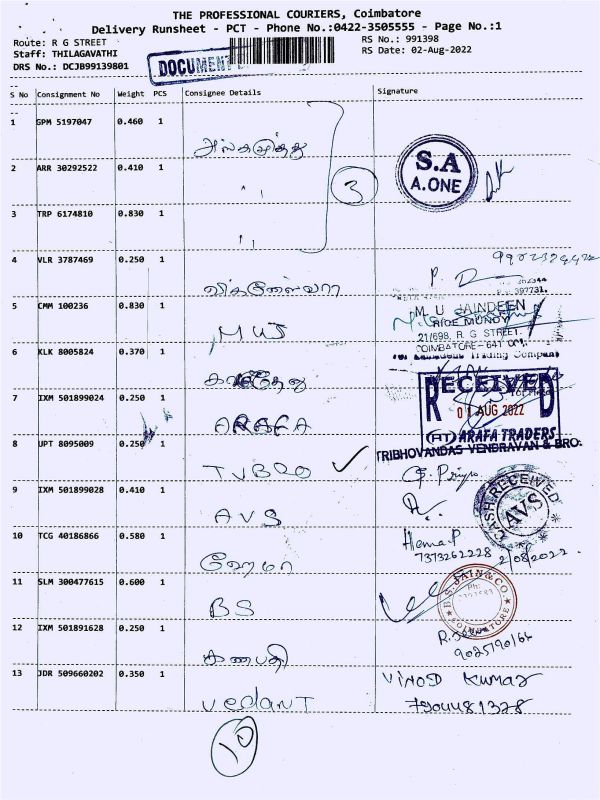 THE PROFESSIONAL COURIERS, Coimbatore
Delivery Runsheet - PCT - Phone No.:0422-3505555 - Page No.:1
Route: R G STREET
RS No.: 991398
Staff: THILAGAVATHI
RS Date: 02-Aug-2022
DRS No.: DCJB99139801
DOCUMENT
S No Consignment No Weight PCS Consignee Details Signature
1 GPM 5197047 0.460 1
S.A
A.ONE
2 ARR 30292522 0.410 1
" 3
3 TRP 6174810 0.830 1
"
4 VLR 3787469 0.250 1
5 CMM 100236 0.830 1
MUJ
M. U. JAINDEEN
HIDE MUNDY
21/698, R. G. STREET.
COIMBATORE - 641 001.
6 KLK 8005824 0.370 1
Trading Company
7 IXM 501899024 0.250 1
ARAFA
RECEIVED
01 AUG 2022
ARAFA TRADERS
8 UPT 8095009 0.250 1
TVBRO
TRIBHOVANDAS VENDRAVAN & BRO.
G. Priya
9 IXM 501899028 0.410 1
AVS
CASH RECEIVED
AVS
10 TCG 40186866 0.580 1
ஹேமா
Hema.P
7373262228
2/08/2022.
11 SLM 300477615 0.600 1
BS
B.S. JAIN & CO.
COIMBATORE
12 IXM 501891628 0.250 1
கணபதி
9025790166
13 JDR 509660202 0.350 1
vedanT
VINOD Kumar
7904481328
10